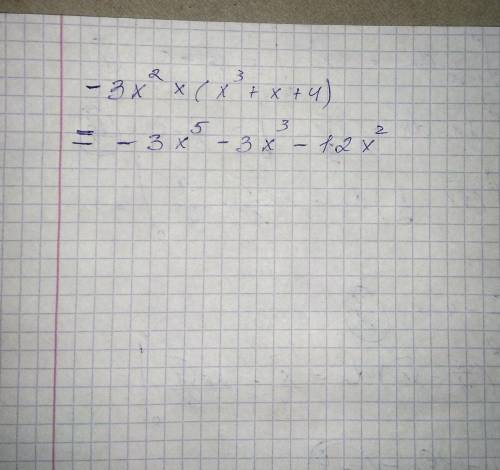 - 3x² × (x³ + x + 4)
= - 3x⁵ - 3x³ - 12x²